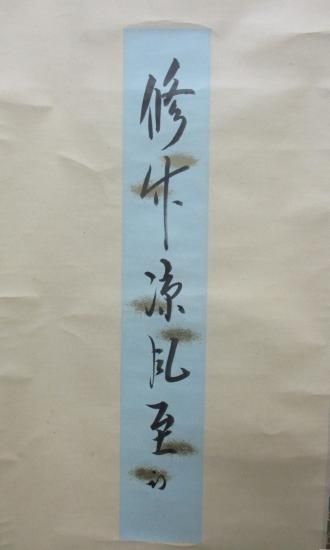 修竹凉風至